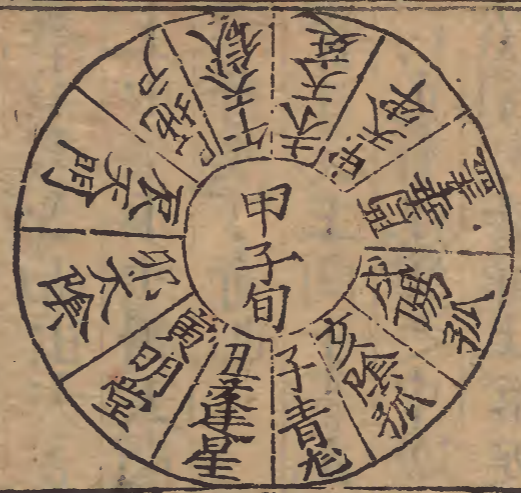 甲子旬
子青龙
丑蓬星
寅明堂
卯太陰
辰天門
巳地户
午天獄
未天庭
申天牢
酉華蓋
戌陽孤
亥陰孤